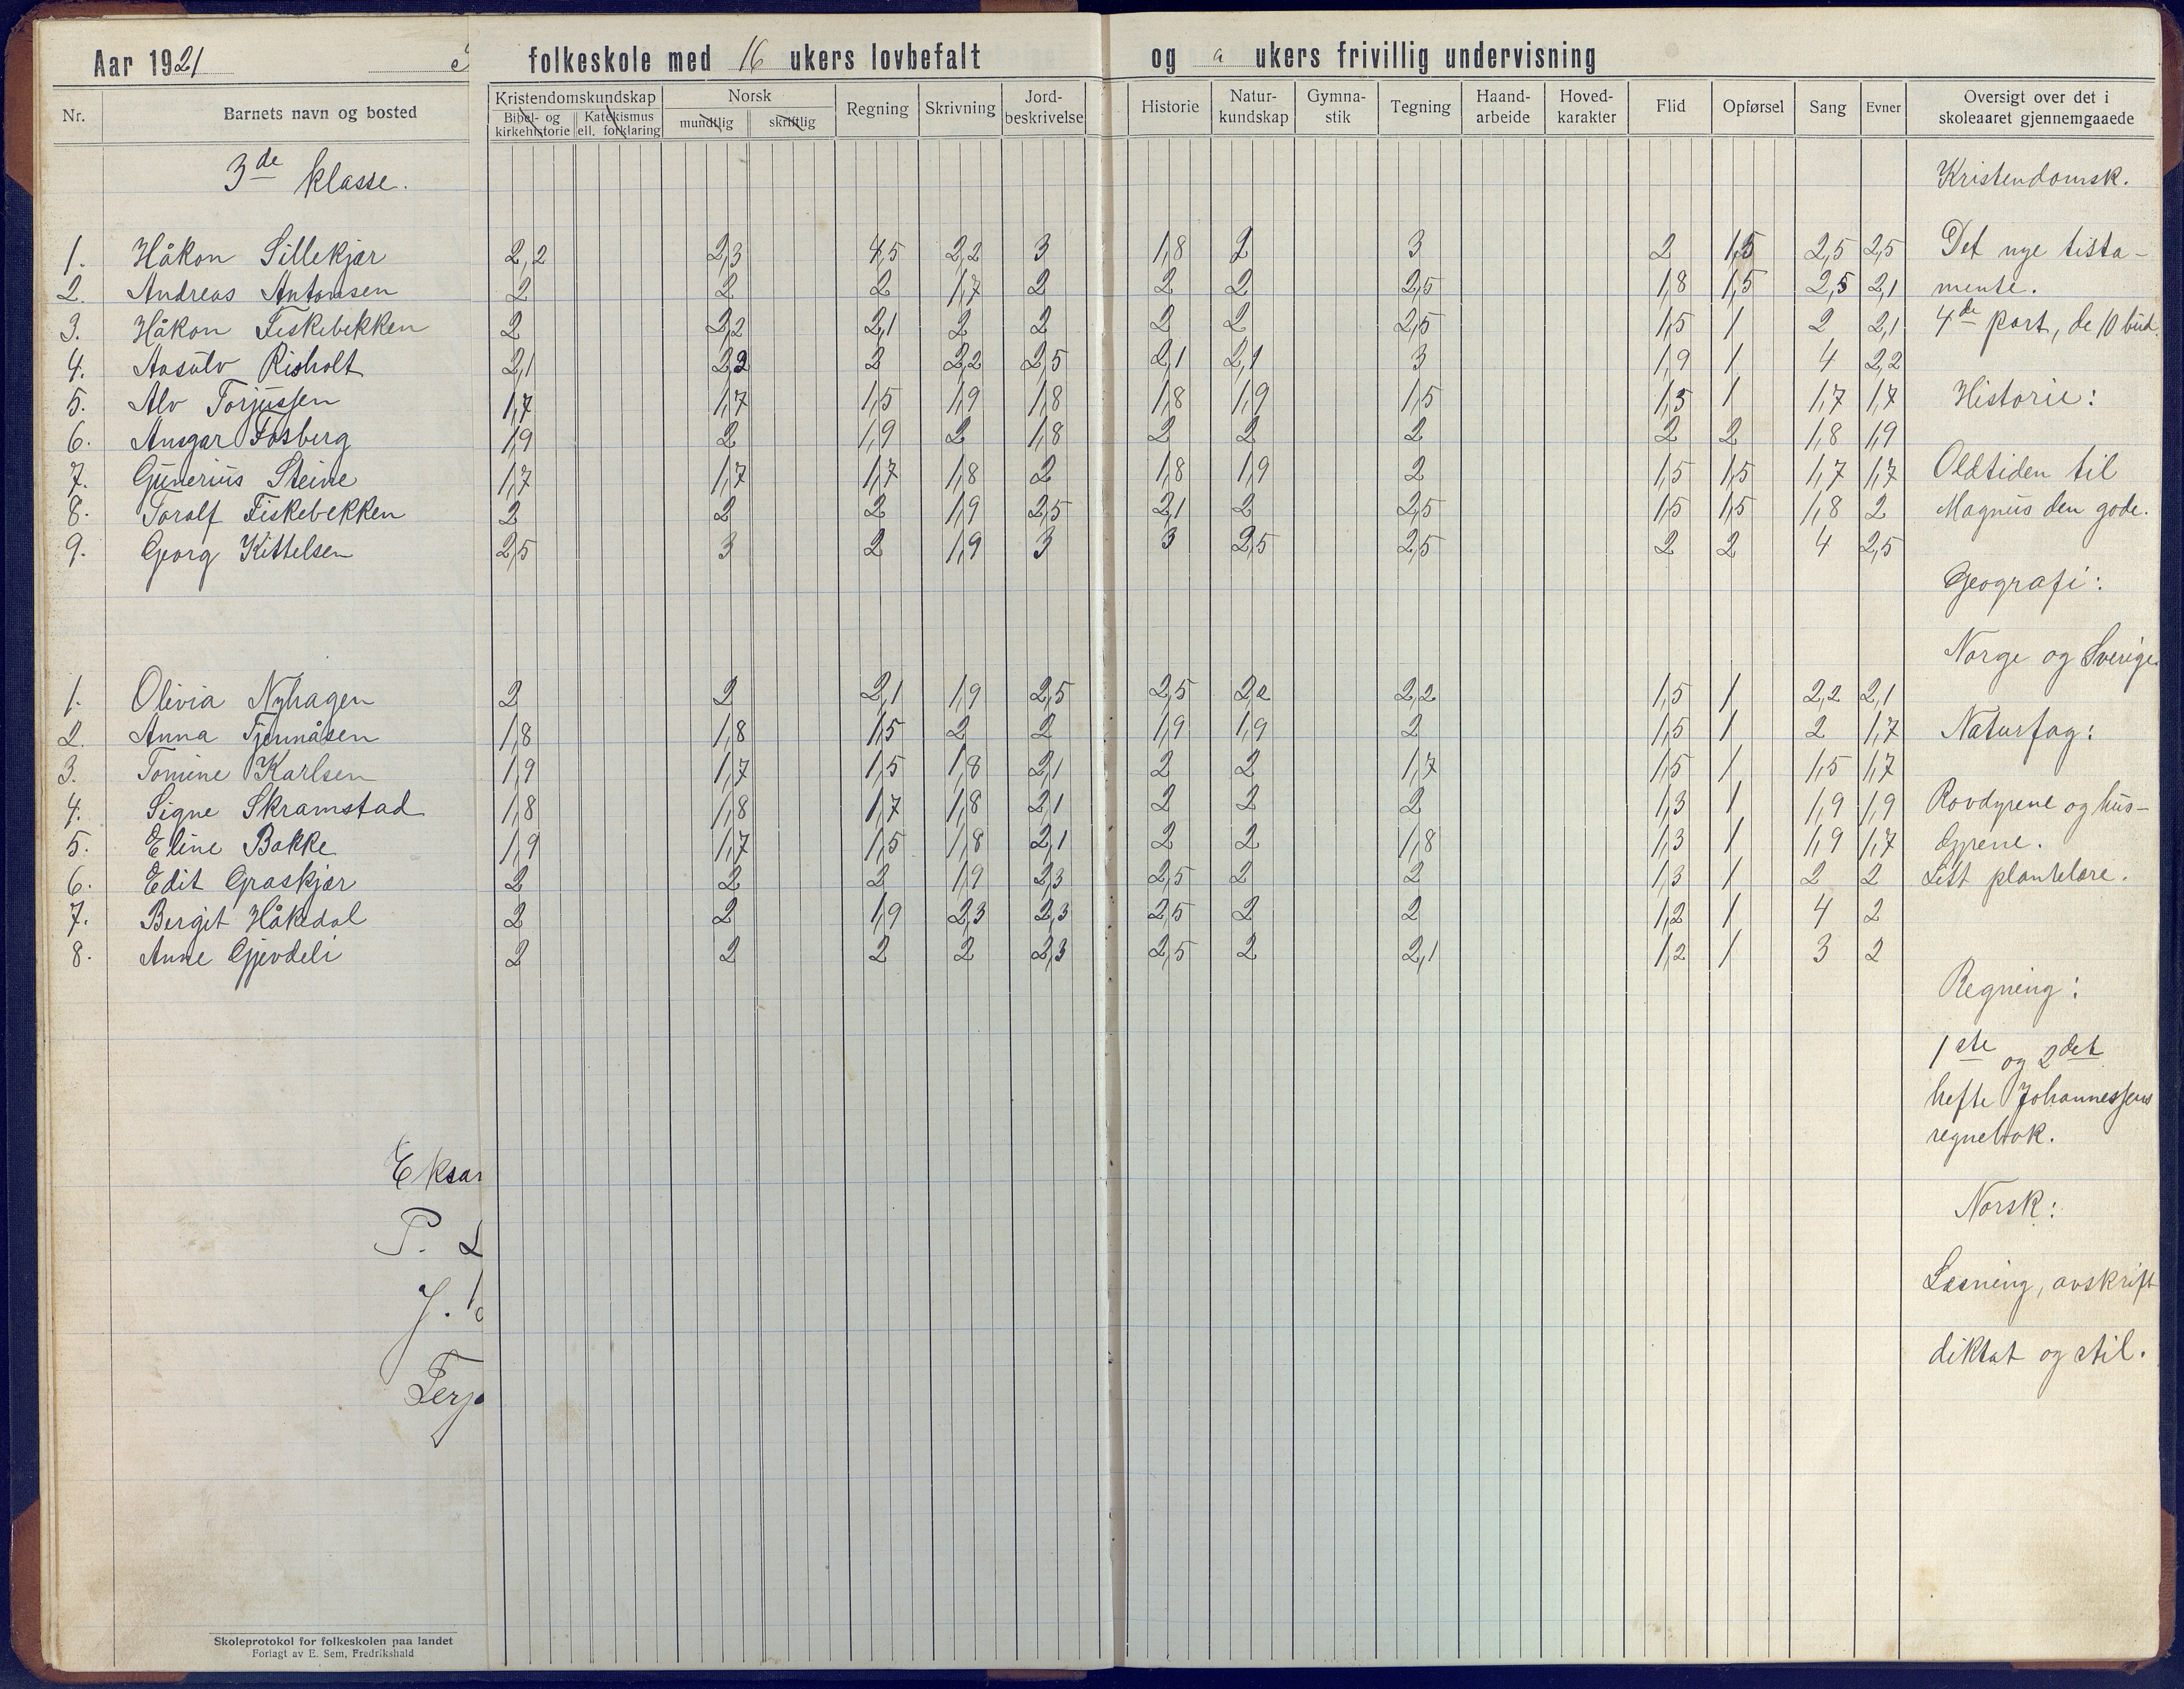 Aar 1921 folkeskole med 16 ukers lovbefalt og a ukers frivillig undervisning
Nr. Barnets navn og bosted Kristendomskundskap Bibel- og kirkehistorie Katekismus ell. forklaring Norsk mundtlig skriftlig Regning Skrivning Jord-beskrivelse Historie Natur-kundskap Gymna-stik Tegning Haand-arbeide Hoved-karakter Flid Opførsel Sang Evner Oversigt over det i skoleaaret gjennemgaaede
3de klasse. Kristendomsk.
1. Håkon Sillekjær 2,2 2,3 4,5 2,2 3 1,8 2 3 2 1,5 2,5 2,5 Det nye tista-
2. Andreas Antonsen 2 2 2 1,7 2 2 2 2,5 1,8 1,5 2,5 2,1 mente.
3. Håkon Fiskebekken 2 2,2 2,1 2 2 2 2 2,5 1,5 1 2 2,1 4de part, de 10 bud.
4. Aasulv Risholt 2,1 2,2 2 2,2 2,5 2,1 2,1 3 1,9 1 4 2,2
5. Alv Torjussen 1,7 1,7 1,5 1,9 1,8 1,8 1,9 1,5 1,5 1 1,7 1,7 Historie:
6. Ansgar Fosberg 1,9 2 1,9 2 1,8 2 2 2 2 2 1,8 1,9
7. Gunerius Steine 1,7 1,7 1,7 1,8 2 1,8 1,9 2 1,5 1,5 1,7 1,7 Oldtiden til
8. Toralf Fiskebekken 2 2 2 1,9 2,5 2,1 2 2,5 1,5 1,5 1,8 2 Magnus den gode.
9. Georg Kittelsen 2,5 3 2 1,9 3 3 2,5 2,5 2 2 4 2,5
Geografi:
Norge og Sverige.
1. Olivia Nyhagen 2 2 2,1 1,9 2,5 2,5 2,2 2,2 1,5 1 2,2 2,1
2. Anna Tjennåsen 1,8 1,8 1,5 2 2 1,9 1,9 2 1,5 1 2 1,7 Naturfag:
3. Tomine Karlsen 1,9 1,7 1,5 1,8 2,1 2 2 1,7 1,5 1 1,5 1,7
4. Signe Skramstad 1,8 1,8 1,7 1,8 2,1 2 2 2 1,3 1 1,9 1,9 Rovdyrene og hus-
5. Eline Bakke 1,9 1,7 1,5 1,8 2,1 2 2 1,8 1,3 1 1,9 1,7 dyrene.
6. Edit Graskjær 2 2 2 1,9 2,3 2,5 2 2 1,3 1 2 2 Litt plantelære.
7. Bergit Håkedal 2 2 1,9 2,3 2,3 2,5 2 2 1,2 1 4 2
8. Anne Gjevdeli 2 2 2 2 2,3 2,5 2 2,1 1,2 1 3 2
Regning:
1ste og 2det
hefte Johannessens
regnebok.
Eksar
Norsk:
P. L
Læsning, avskrift
J.
diktat og stil.
Terj
Skoleprotokol for folkeskolen paa landet
Forlagt av E. Sem, Fredrikshald